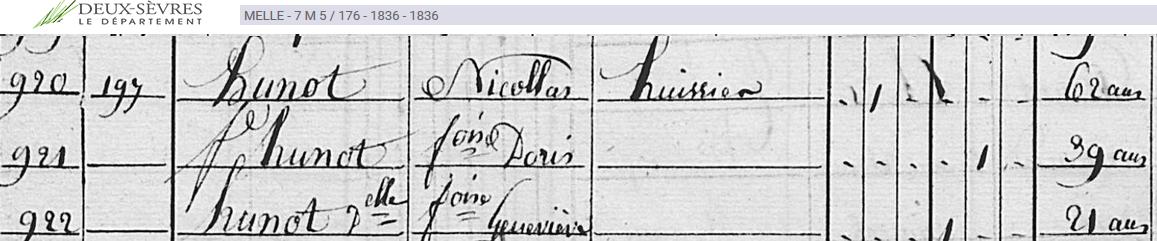 DEUX-SÈVRES
LE DÉPARTEMENT
MELLE - 7 M 5 / 176 - 1836 - 1836
920 197 hunot Nicollas huissier 62 ans
921 fe hunot foise Doris 39 ans
922 hunot delle foise Geneviève 21 ans